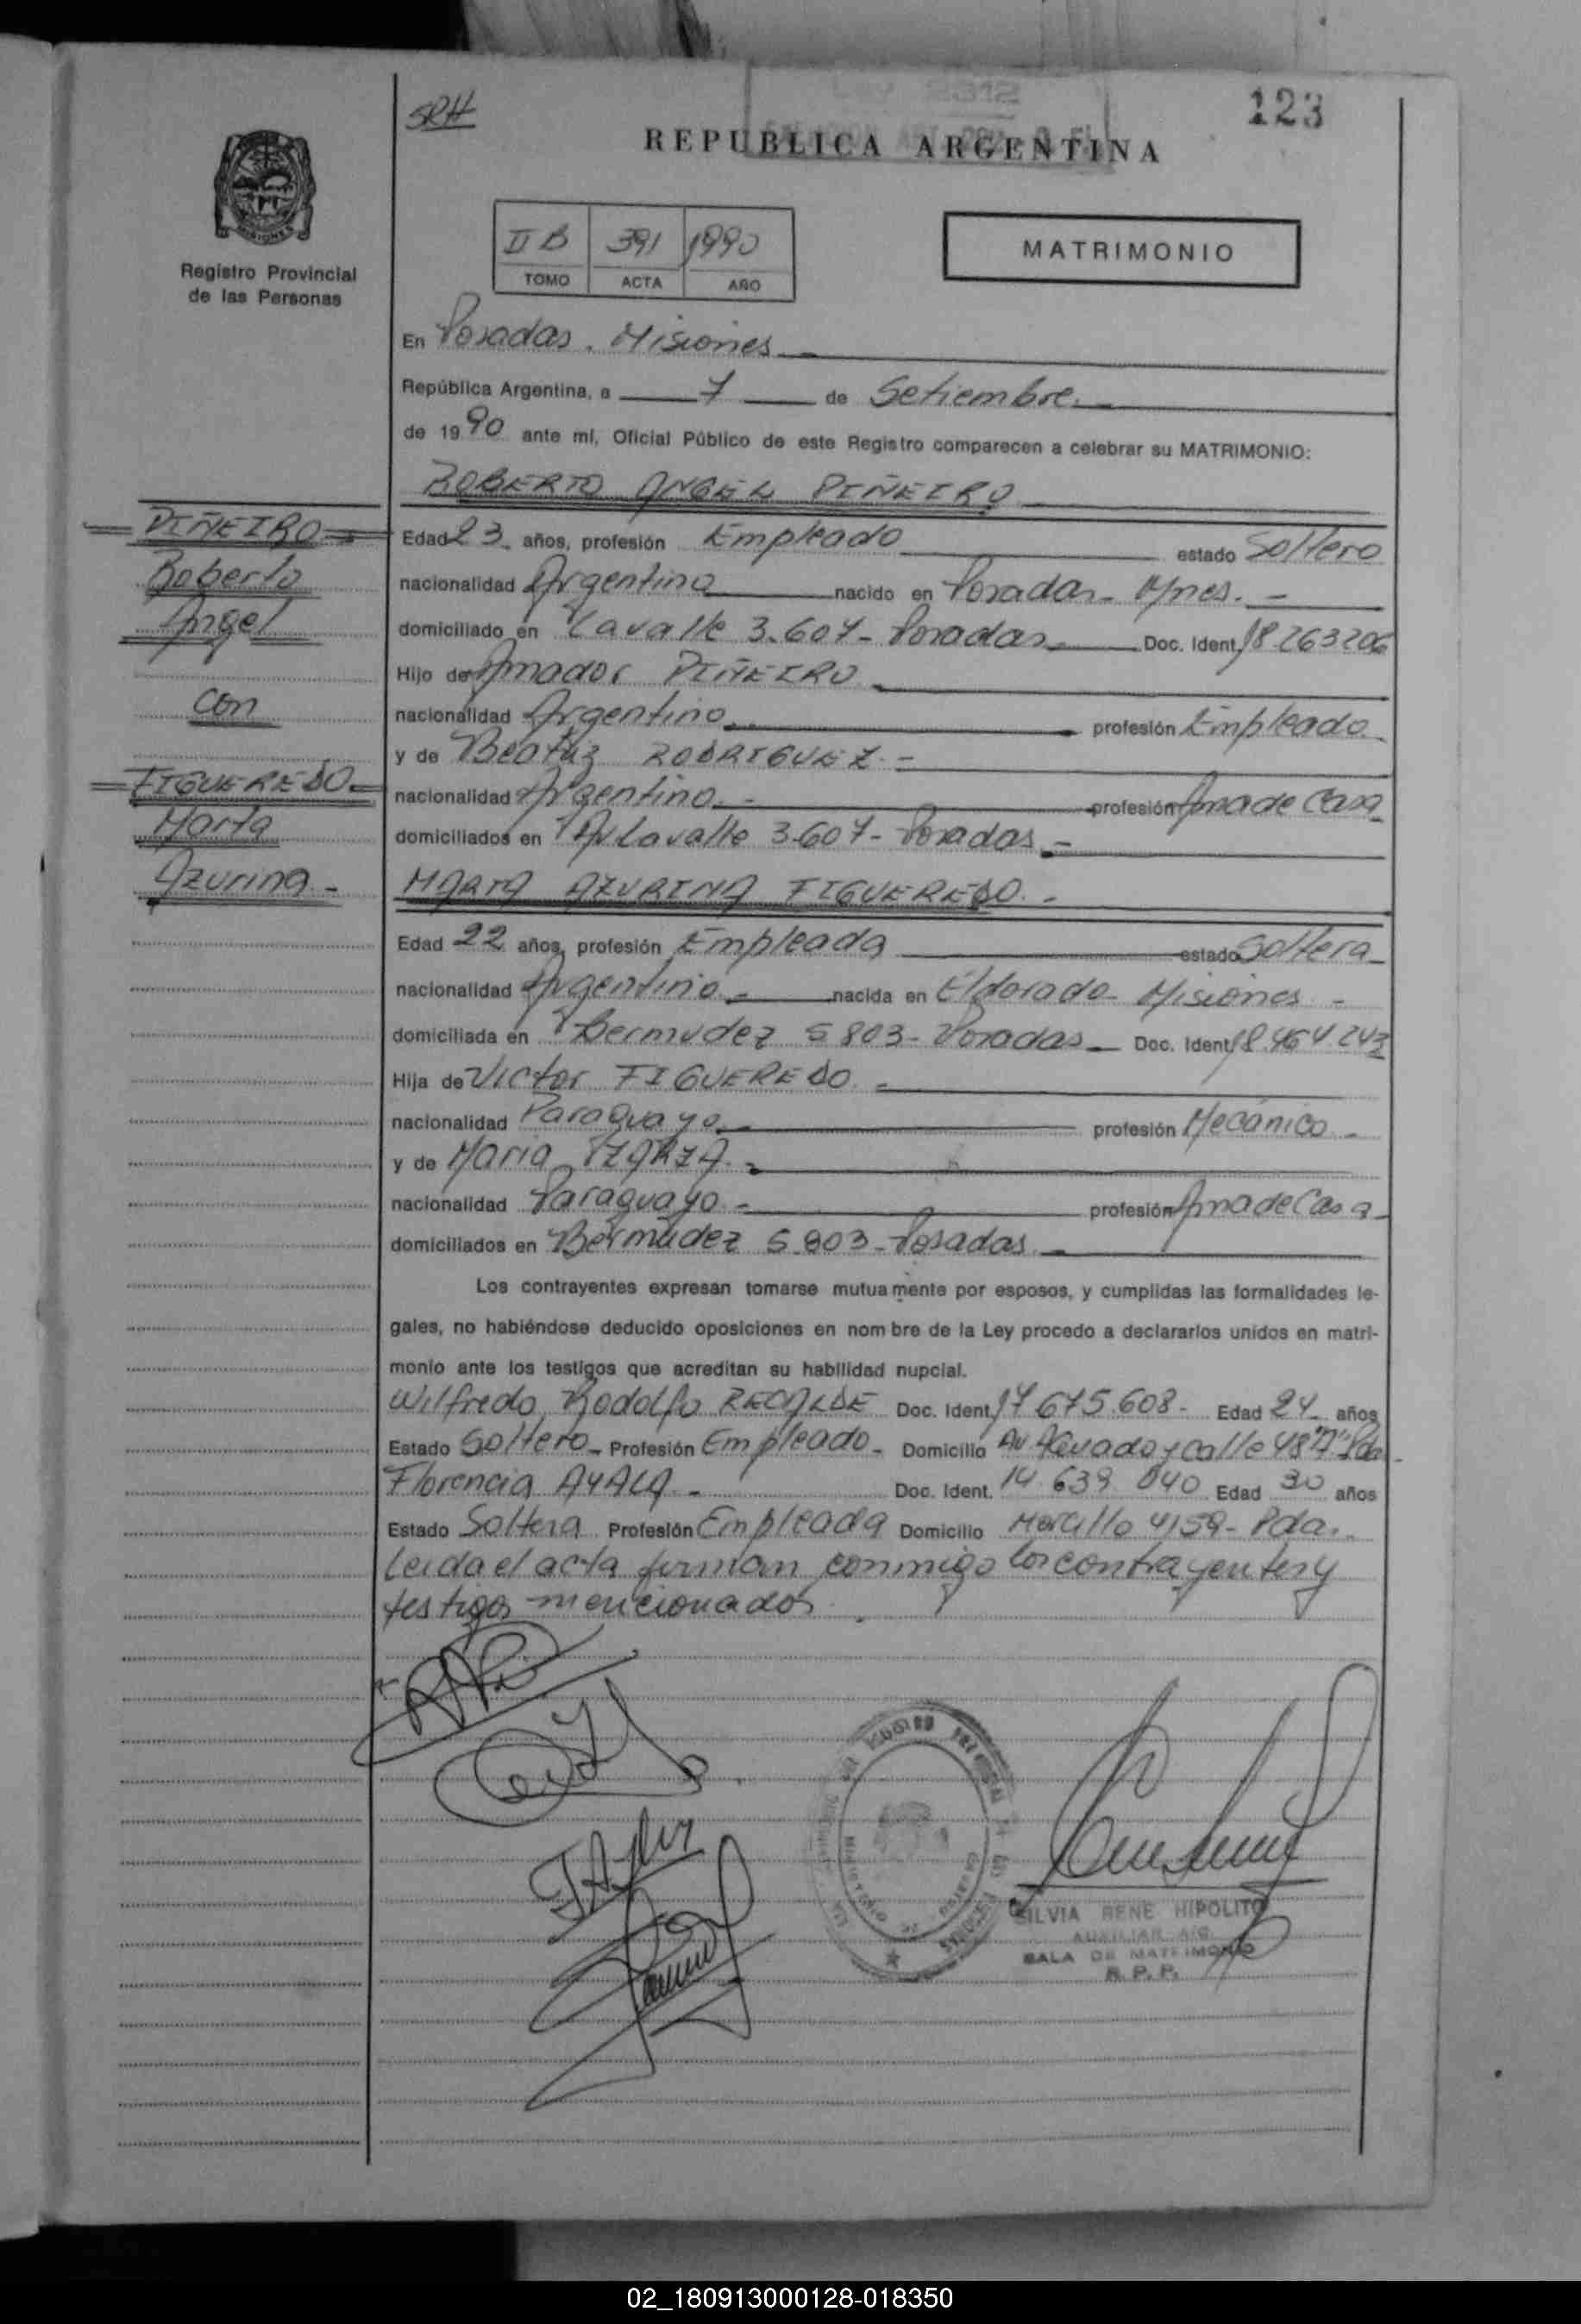 SRH
123
REPUBLICA ARGENTINA
MISIONES
Registro Provincial
de las Personas
II B 391 1990
TOMO ACTA AÑO
MATRIMONIO
En Posadas. Misiones
República Argentina, a 7 de Setiembre.
de 1990 ante mí, Oficial Público de este Registro comparecen a celebrar su MATRIMONIO:
ROBERTO ANGEL PIÑEIRO
PIÑEIRO
Roberto
Angel
con
FIGUEREDO
Marta
Azurina -
Edad 23 años, profesión Empleado estado Soltero
nacionalidad Argentina nacido en Posadas - Mnes. -
domiciliado en Lavalle 3.607 - Posadas Doc. Ident. 18.263206
Hijo de Amador PIÑEIRO
nacionalidad Argentino profesión Empleado
y de Beatriz RODRIGUEZ. -
nacionalidad Argentina. - profesión Ama de Casa
domiciliados en Av Lavalle 3.607 - Posadas -
MARTA AZURINA FIGUEREDO. -
Edad 22 años, profesión Empleada estado Soltera
nacionalidad Argentina - nacida en Eldorado - Misiones -
domiciliada en Bermudez 5803 - Posadas Doc. Ident. 18.464.243
Hija de Victor FIGUEREDO. -
nacionalidad Paraguayo profesión Mecánico -
y de Maria IZARZA. -
nacionalidad Paraguaya - profesión Ama de Casa
domiciliados en Bermúdez 5.803 - Posadas
Los contrayentes expresan tomarse mutuamente por esposos, y cumplidas las formalidades le-
gales, no habiéndose deducido oposiciones en nombre de la Ley procedo a declararlos unidos en matri-
monio ante los testigos que acreditan su habilidad nupcial.
Wilfredo Rodolfo RECALDE Doc. Ident. 17675.608 - Edad 24 años
Estado Soltero - Profesión Empleado - Domicilio Av y calle 48"A" Pda
Florencia AYALA - Doc. Ident. 14.639.040 Edad 30 años
Estado Soltera Profesión Empleada Domicilio 4159 - Pda.
Leida el acta firman conmigo los contrayentes y
testigos mencionados.
SILVIA RENE HIPOLITO
AUXILIAR A/C
SALA DE MATRIMONIO
R. P. P.
02_180913000128-018350